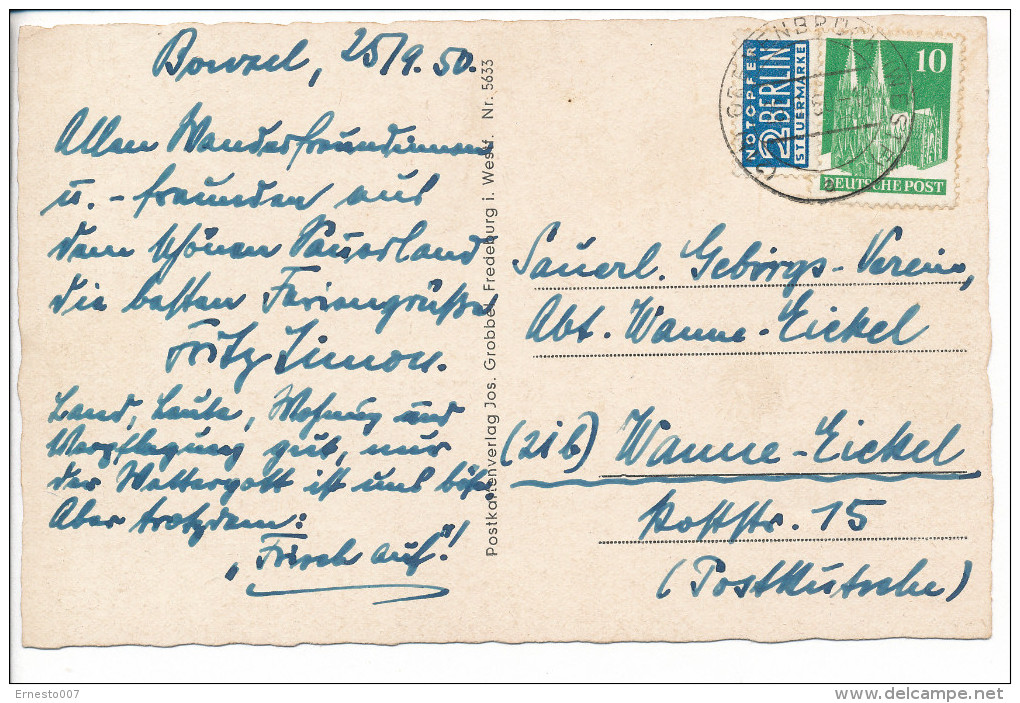 25/9. 50.
Allen Wanderfreundinnen
u. - freunden aus
dem schönen Sauerland
die besten Feriengrüße
Fritz Simon.
Land, Leute, Wohnung und
Verpflegung gut, nur
der Wettergott ist uns böse.
Aber trotzdem:
„Frisch auf"!
Postkartenverlag Jos. Grobbel, Fredeburg i. Westf. Nr. 5633
NOTOPFER
2 BERLIN
STEUERMARKE
10
DEUTSCHE POST
Sauerl. Gebirgs-Verein,
Abt. Wanne-Eickel
(21b) Wanne-Eickel
Poststr. 15
(Postkutsche)
Ernesto007
delcampe.net